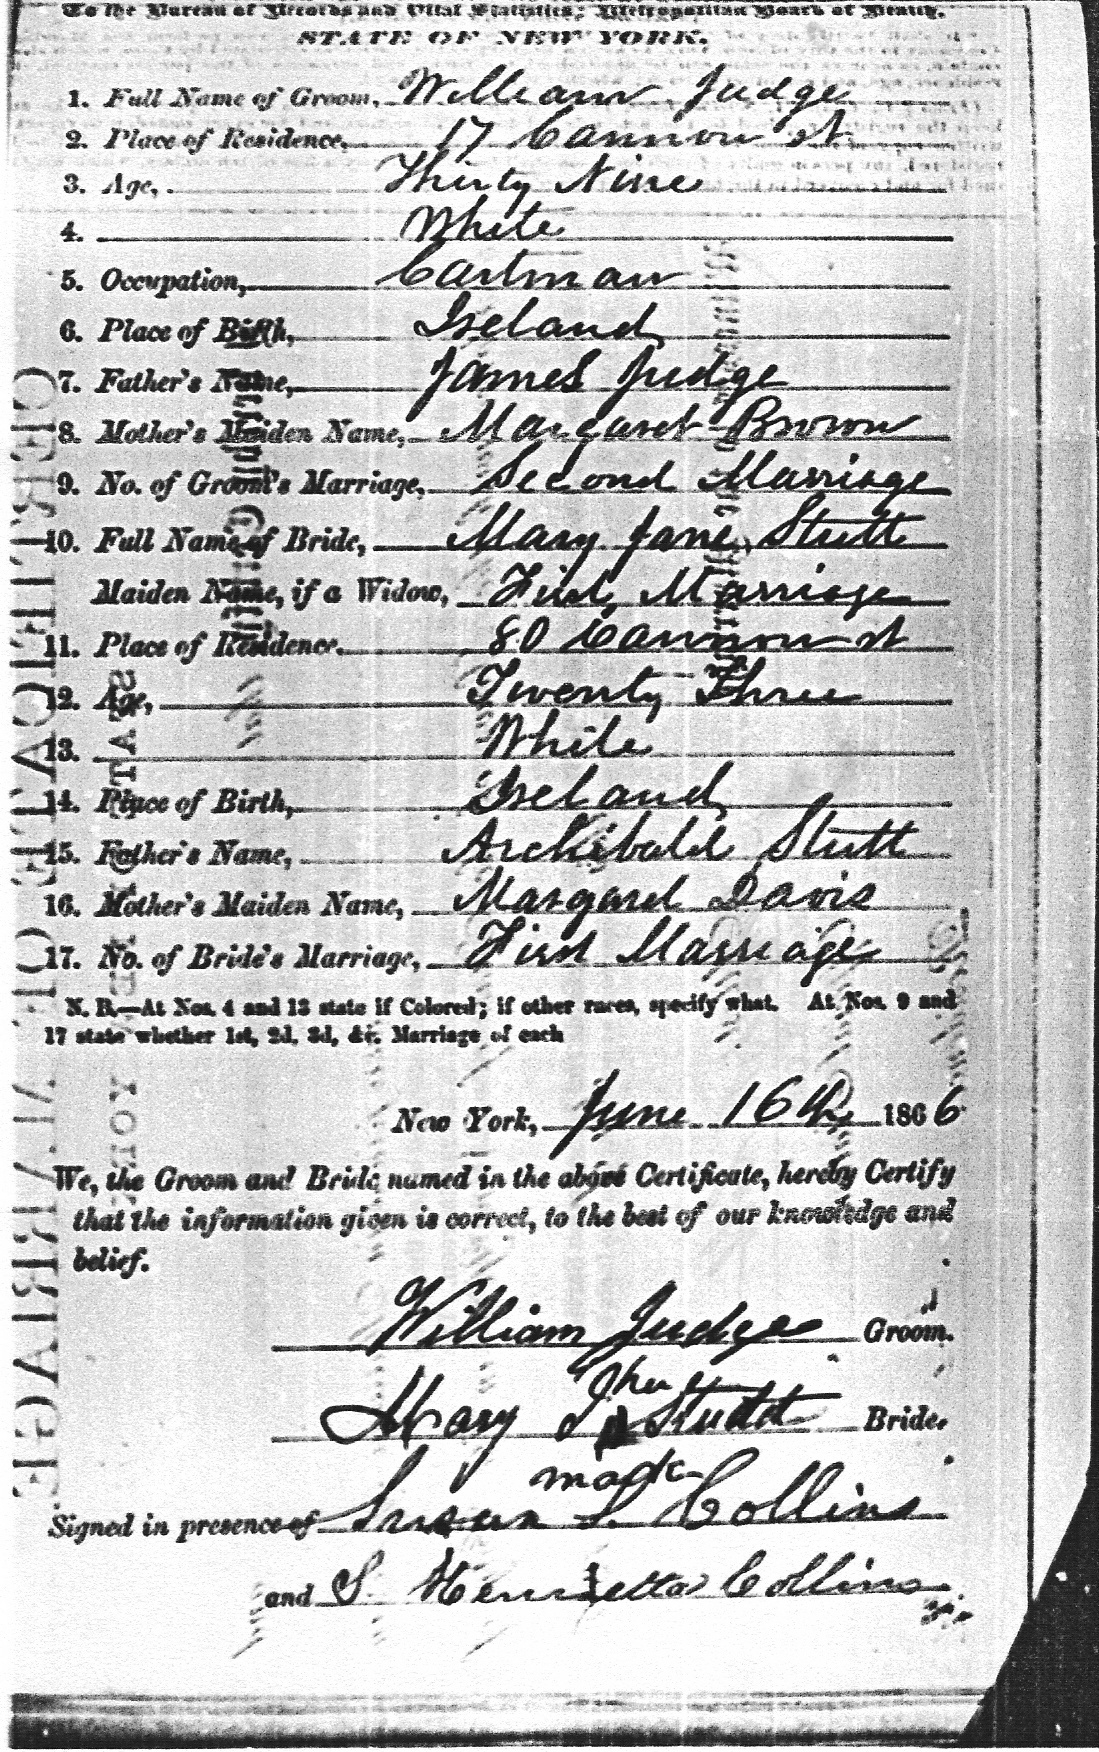 To the Bureau of Records and Vital Statistics, Metropolitan Board of Health,
STATE OF NEW YORK.
1. Full Name of Groom, William Judge
2. Place of Residence, 17 Cannon st
3. Age, Thirty Nine
4. White
5. Occupation, Cartman
6. Place of Birth, Ireland
7. Father's Name, James Judge
8. Mother's Maiden Name, Margaret Brown
9. No. of Groom's Marriage, Second Marriage
10. Full Name of Bride, Mary Jane Stutt
Maiden Name, if a Widow, First Marriage
11. Place of Residence. 80 Cannon st
12. Age, Twenty Three
13. White
14. Place of Birth, Ireland
15. Father's Name, Archibald Stutt
16. Mother's Maiden Name, Margaret Davis
17. No. of Bride's Marriage, First Marriage
N. B.—At Nos. 4 and 13 state if Colored; if other races, specify what. At Nos. 9 and
17 state whether 1st, 2d, 3d, &c. Marriage of each
New York, June 16th 1866
We, the Groom and Bride named in the above Certificate, hereby Certify
that the information given is correct, to the best of our knowledge and
belief.
William Judge Groom.
her
Mary J Stutt Bride.
mark
Signed in presence of Susan S. Collins
and S Henrietta Collins
CERTIFICATE OF MARRIAGE